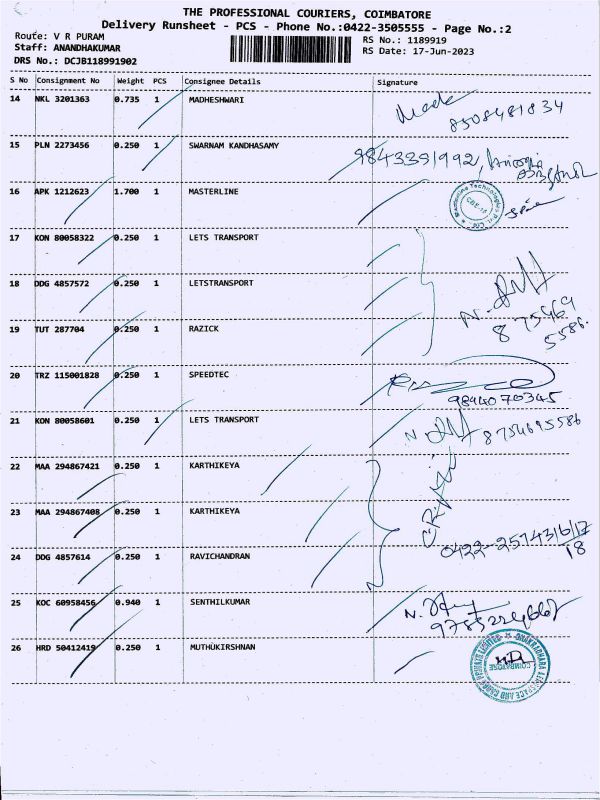 THE PROFESSIONAL COURIERS, COIMBATORE
Delivery Runsheet - PCS - Phone No.:0422-3505555 - Page No.:2
Route: V R PURAM
RS No.: 1189919
Staff: ANANDHAKUMAR
RS Date: 17-Jun-2023
DRS No.: DCJB118991902
S No Consignment No Weight PCS Consignee Details Signature
14 NKL 3201363 0.735 1 MADHESHWARI
8508481834
15 PLN 2273456 0.250 1 SWARNAM KANDHASAMY
9843391992,
16 APK 1212623 1.700 1 MASTERLINE
17 KON 80058322 0.250 1 LETS TRANSPORT
18 DDG 4857572 0.250 1 LETSTRANSPORT
19 TUT 287704 0.250 1 RAZICK
875469
5586.
20 TRZ 115001828 0.250 1 SPEEDTEC
9844070345
21 KON 80058601 0.250 1 LETS TRANSPORT
8754695586
22 MAA 294867421 0.250 1 KARTHIKEYA
23 MAA 294867408 0.250 1 KARTHIKEYA
0422-2574316/17
18
24 DDG 4857614 0.250 1 RAVICHANDRAN
25 KOC 60958456 0.940 1 SENTHILKUMAR
26 HRD 50412419 0.250 1 MUTHUKIRSHNAN
COIMBATORE